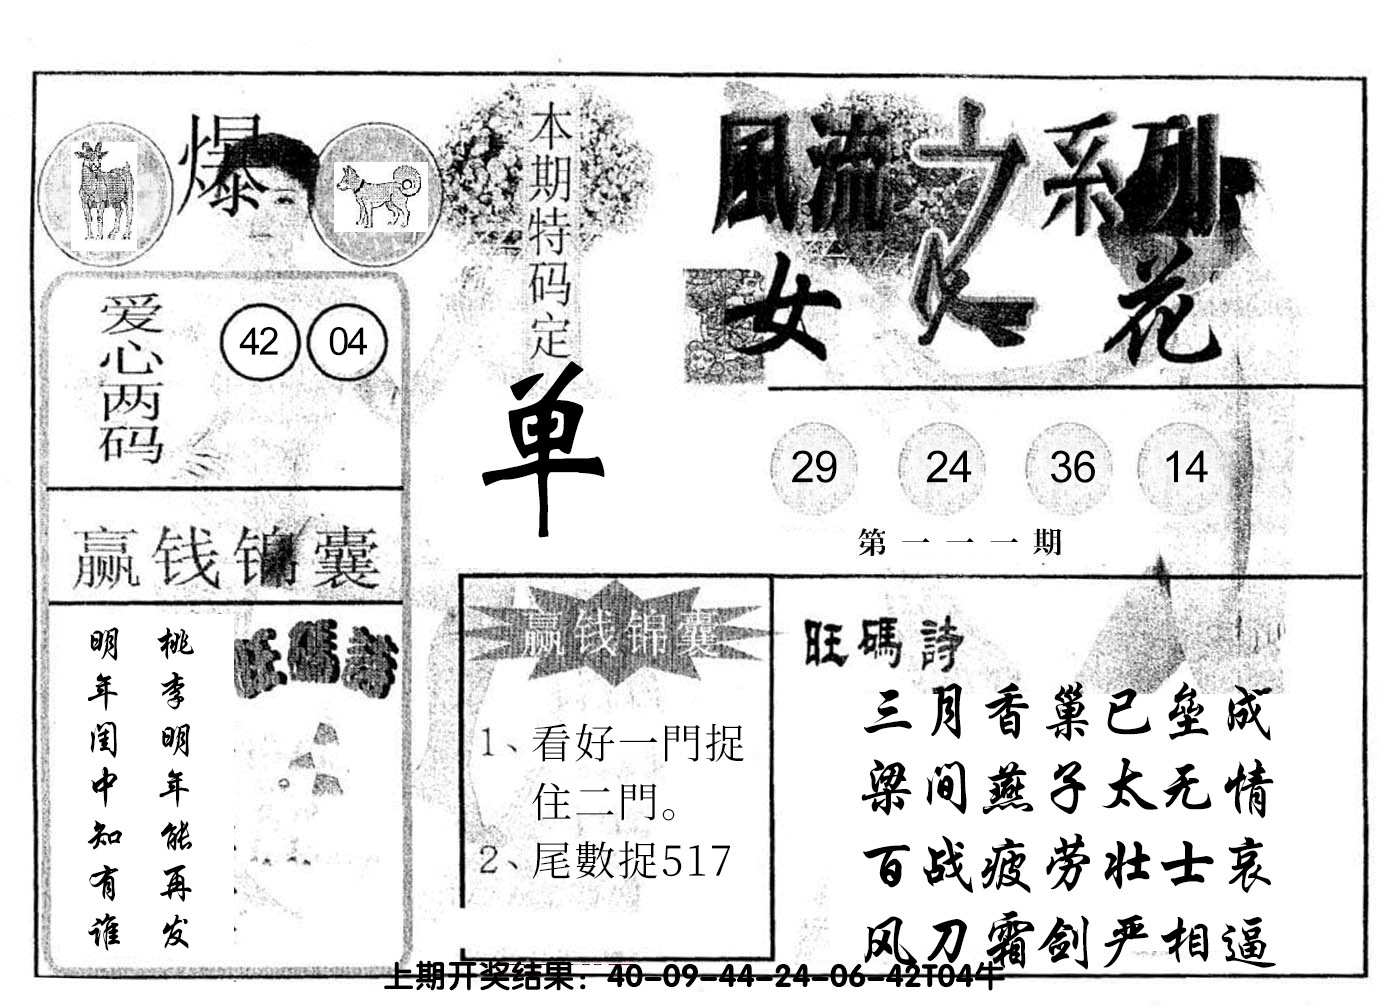 爆
本期特码定
单
風流之系列
女人花
爱心两码
42 04
29 24 36 14
第一一一期
赢钱锦囊
桃李明年能再发
明年闺中知有谁
旺碼詩
赢钱锦囊
1、看好一門捉
住二門。
2、尾數捉517
旺碼詩
三月香巢已垒成
梁间燕子太无情
百战疲劳壮士哀
风刀霜剑严相逼
上期开奖结果：40-09-44-24-06-42T04牛